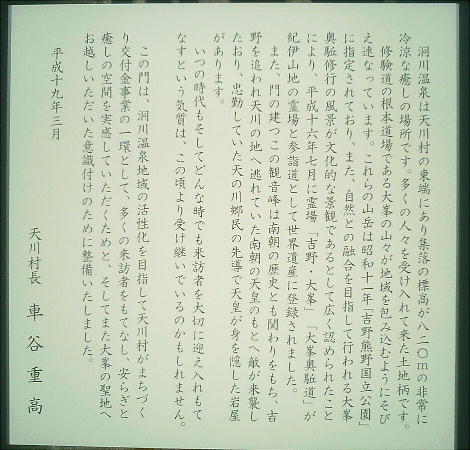 洞川温泉は天川村の東端にあり集落の標高が八二〇mの非常に
冷涼な癒しの場所です。多くの人々を受け入れて来た土地柄です。
修験道の根本道場である大峯の山々が地域を包み込むようにそび
え連なっています。これらの山岳は昭和十一年「吉野熊野国立公園」
に指定されており、また、自然との融合を目指して行われる大峯
奥駈修行の風景が文化的な景観であるとして広く認められたこと
により、平成十六年七月に霊場「吉野・大峯」「大峯奥駈道」が
紀伊山地の霊場と参詣道として世界遺産に登録されました。
また、門の建つこの観音峰は南朝の歴史とも関わりをもち、吉
野を追われ天川の地へ逃れていた南朝の天皇のもとへ敵が来襲し
たおり、忠勤していた天の川郷民の先導で天皇が身を隠した岩屋
があります。
いつの時代もそしてどんな時でも来訪者を大切に迎え入れもて
なすという気質は、この頃より受け継いでいるのかもしれません。
この門は、洞川温泉地域の活性化を目指して天川村がまちづく
り交付金事業の一環として、多くの来訪者をもてなし、安らぎと
癒しの空間を実感していただくためと、そしてまた大峯の聖地へ
お越しいただいた意識付けのために整備いたしました。
平成十九年三月
天川村長 車谷重高